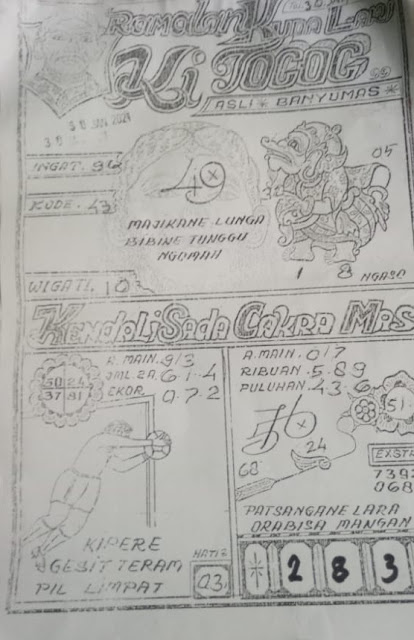 RAMALAN KUDA LARI
KI TOGOG
ASLI * BANYUMAS *
30 JAN 2021
INGAT. 94
49
05
KUDE. 43
MAJIKANE LUNGA
BIBINE TUNGGU
NGOMAH
1 8
NGASO
WIGATI. 10
KENDALI SADA CAKRA MAS
A. MAIN. 9/3
JML 2A. 6-1-4
EKOR 0.7.2
50 24
37 81
KIPERE
GESIT TERAM
PIL LIMPAT
HATI2
03
A. MAIN. 0/7
RIBUAN. 5.89
PULUHAN. 43.6
56
51
24
68
EXSTR
7392
068
PATSANGANE LARA
ORABISA MANGAN
2 8 3